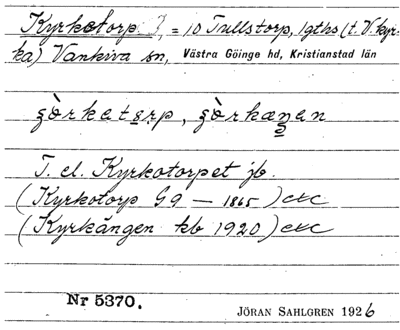 Kyrkotorp, = 10 Tullstorp, lgths (t. V. kyr-
ka) Vankiva sn, Västra Göinge hd, Kristianstad län
T. el. Kyrkotorpet jb.
(Kyrkotorp G9 — 1865) etc
(Kyrkängen kb 1920) etc
Nr 5370.
JÖRAN SAHLGREN 1926